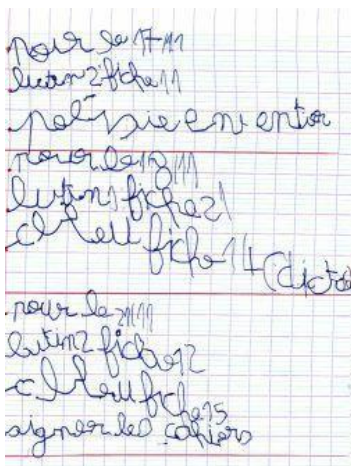 pour le 17/11
lutin 2 fiche 11
poésie en entier
pour le 18/11
lutin 1 fiche 21
c bleu fiche 14 (dicté
pour le 21/11
lutin 2 fiche 12
c bleu fiche 15
signer les cahiers